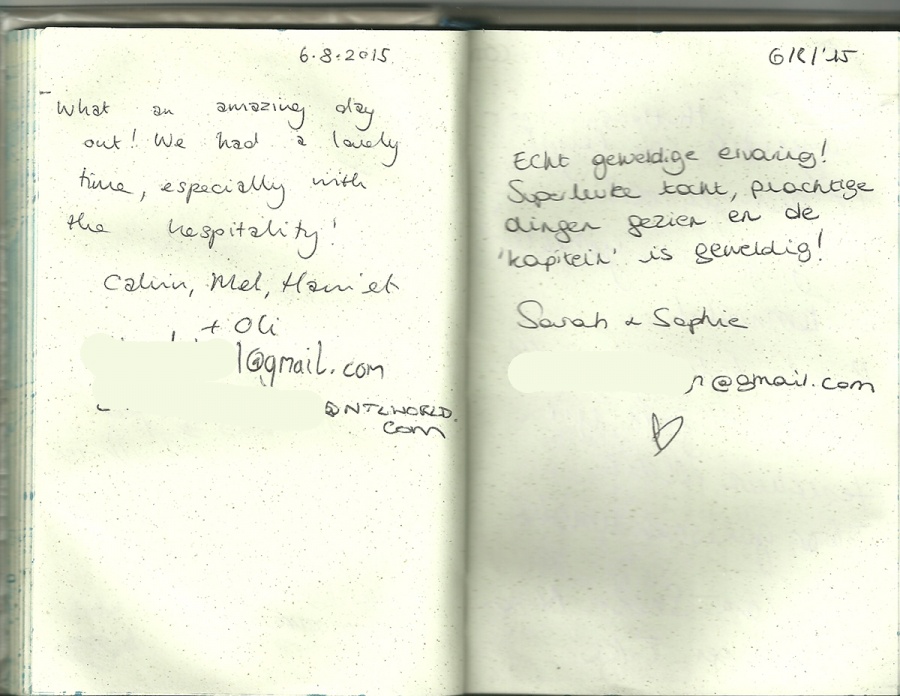 6.8.2015
What an amazing day
out! We had a lovely
time, especially with
the hospitality!
Calvin, Mel, Harriet
+ Oli
l@gmail.com
@NTLWORLD.
com
6/8/'15
Echt geweldige ervaring!
Superleuke tocht, prachtige
dingen gezien en de
'kapitein' is geweldig!
Sarah & Sophie
@gmail.com